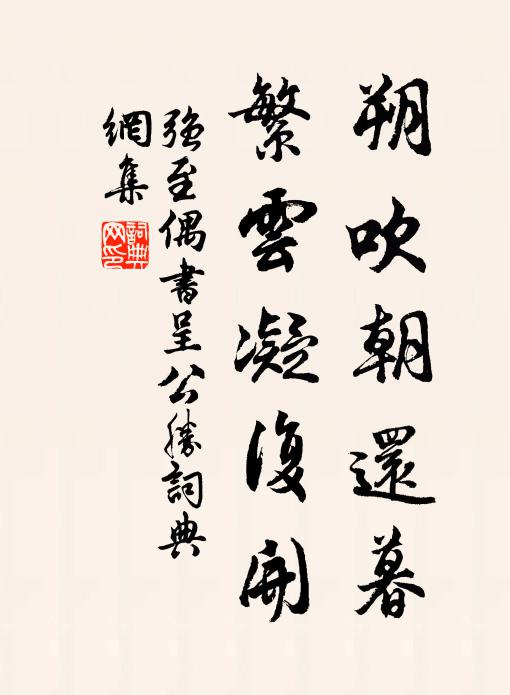 朔吹朝還暮
繁雲凝復開
強至偶書呈公勝詞典
網集
詞典
网印